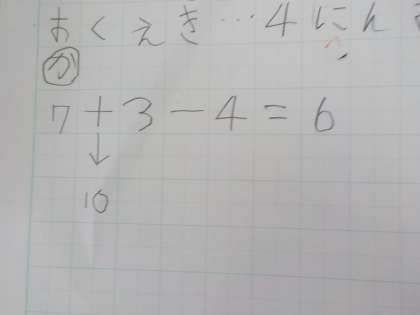 おくえき…4にん
か
7+3-4=6
↓
10